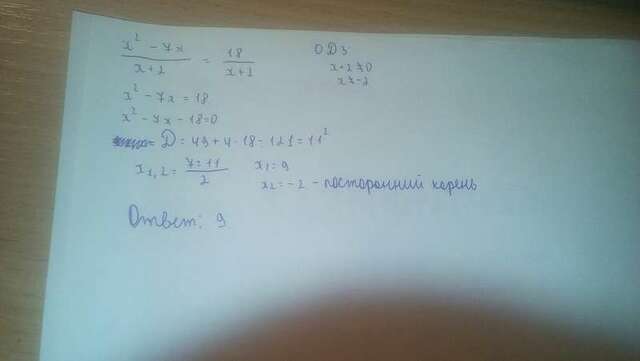 x² - 7x / x+2 = 18 / x+2
ОДЗ
x+2≠0
x≠-2
x² - 7x = 18
x² - 7x - 18=0
D = 49+4·18= 121=11²
x₁,₂ = 7±11 / 2
x₁=9
x₂=-2 - посторонний корень
Ответ: 9